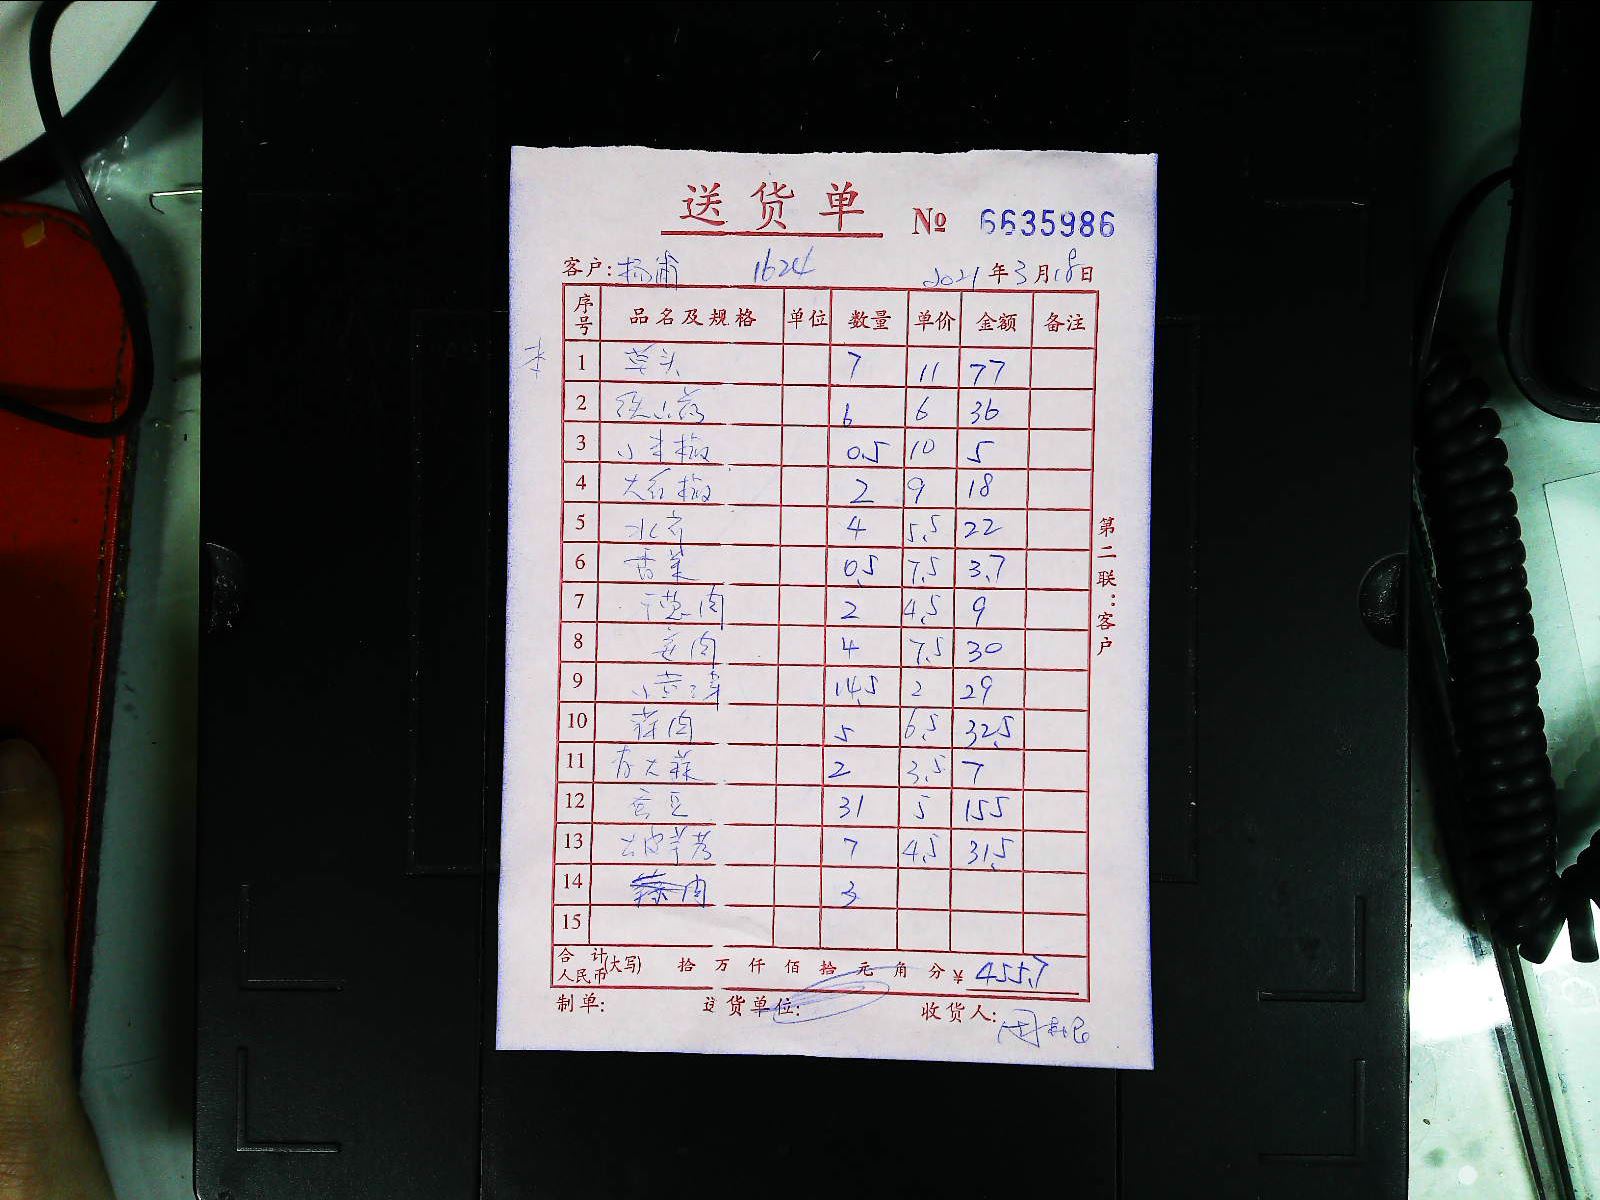 送货单 № 6635986
客户: 杨浦 1624 2021年3月18日
序号 品名及规格 单位 数量 单价 金额 备注
1 草头 7 11 77
2 铁山药 6 6 36
3 小米椒 0.5 10 5
4 大红椒 2 9 18
5 水芹 4 5.5 22
6 香菜 0.5 7.5 3.7
7 葱肉 2 4.5 9
8 肉 4 7.5 30
9 小 14.5 2 29
10 蒜肉 5 6.5 32.5
11 大蒜 2 3.5 7
12 蚕豆 31 5 155
13 去皮芋艿 7 4.5 31.5
14 肉 3
15
合计人民币(大写) 拾 万 仟 佰 拾 元 角 分 ¥ 455.7
制单: 送货单位: 收货人:
第二联:客户